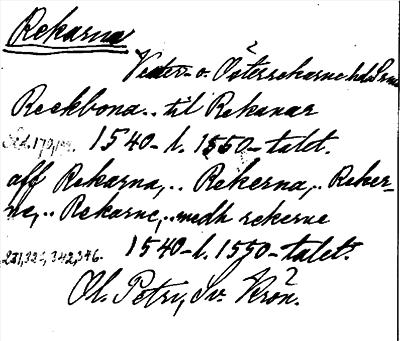 Rekarna
Vester- o. Österrekarne hd
Reekbona .. til Rekanar
1540- l. 1550-talet.
aff Rekarna, .. Rekerna, .. Reker-
ne, .. Rekarne, .. medh rekerne
271, 324, 342, 346. 1540- l. 1550-talet.
Ol. Petri, Sv. Krön.